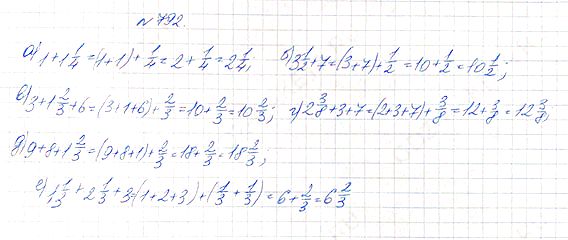 №792.
а) 1+1 1/4=(1+1)+1/4=2+1/4=2 1/4; б) 3 1/2+7=(3+7)+1/2=10+1/2=10 1/2;
в) 3+1 2/3+6=(3+1+6)+2/3=10+2/3=10 2/3; г) 2 3/8+3+7=(2+3+7)+3/8=12+3/8=12 3/8;
д) 9+8+1 2/3=(9+8+1)+2/3=18+2/3=18 2/3;
е) 1 1/3+2 1/3+3=(1+2+3)+(1/3+1/3)=6+2/3=6 2/3